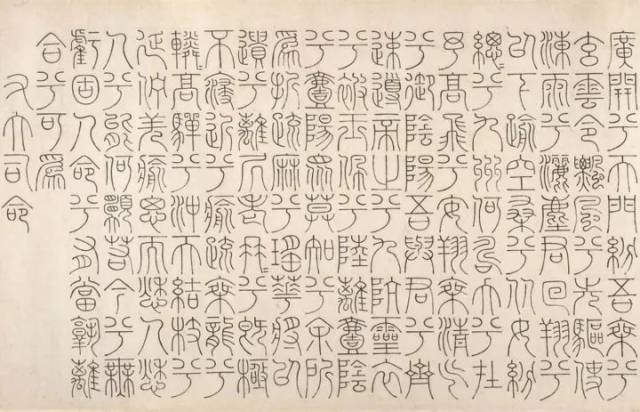 廣開兮天門紛吾乘兮
玄雲令飄風兮先驅使
涷雨兮灑塵君回翔兮
以下踰空桑兮從女紛
總〻兮九州何壽夭兮在
予高飛兮安翔乘清氣
兮御陰陽吾與君兮齊
速導帝之兮九阬靈衣
兮被〻玉佩兮陸離壹陰
兮壹陽眾莫知兮余所
為折疏麻兮瑤華將以
遺兮離居老冉〻兮既極
不寖近兮瘉疏乘龍兮
轔〻高兮沖天結枝兮
延佇羌瘉思而愁人愁
人兮何顛若今兮無
虧固人命兮有當孰離
合兮可為
右大司命